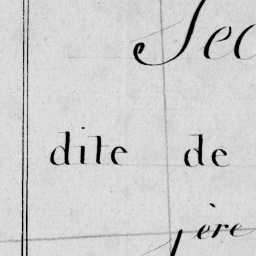 Sec
dite de
ère